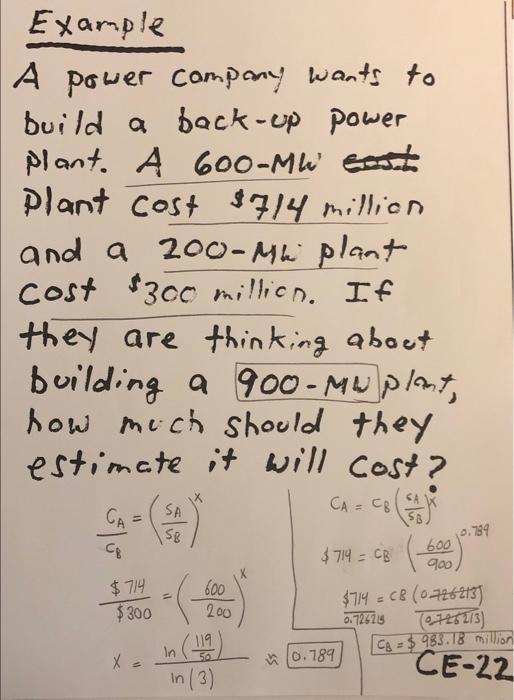 Example
A power company wants to
build a back-up power
plant. A 600-MW cost
plant cost $714 million
and a 200-MW plant
cost $300 million. If
they are thinking about
building a 900-MW plant,
how much should they
estimate it will cost?
C_A/C_B = (S_A/S_B)^x
$714/$300 = (600/200)^x
x = ln(119/50)/ln(3) ≈ 0.789
C_A = C_B (S_A/S_B)^x
$714 = C_B (600/900)^0.789
$714/0.726213 = C_B (0.726213)/(0.726213)
C_B = $983.18 million
CE-22